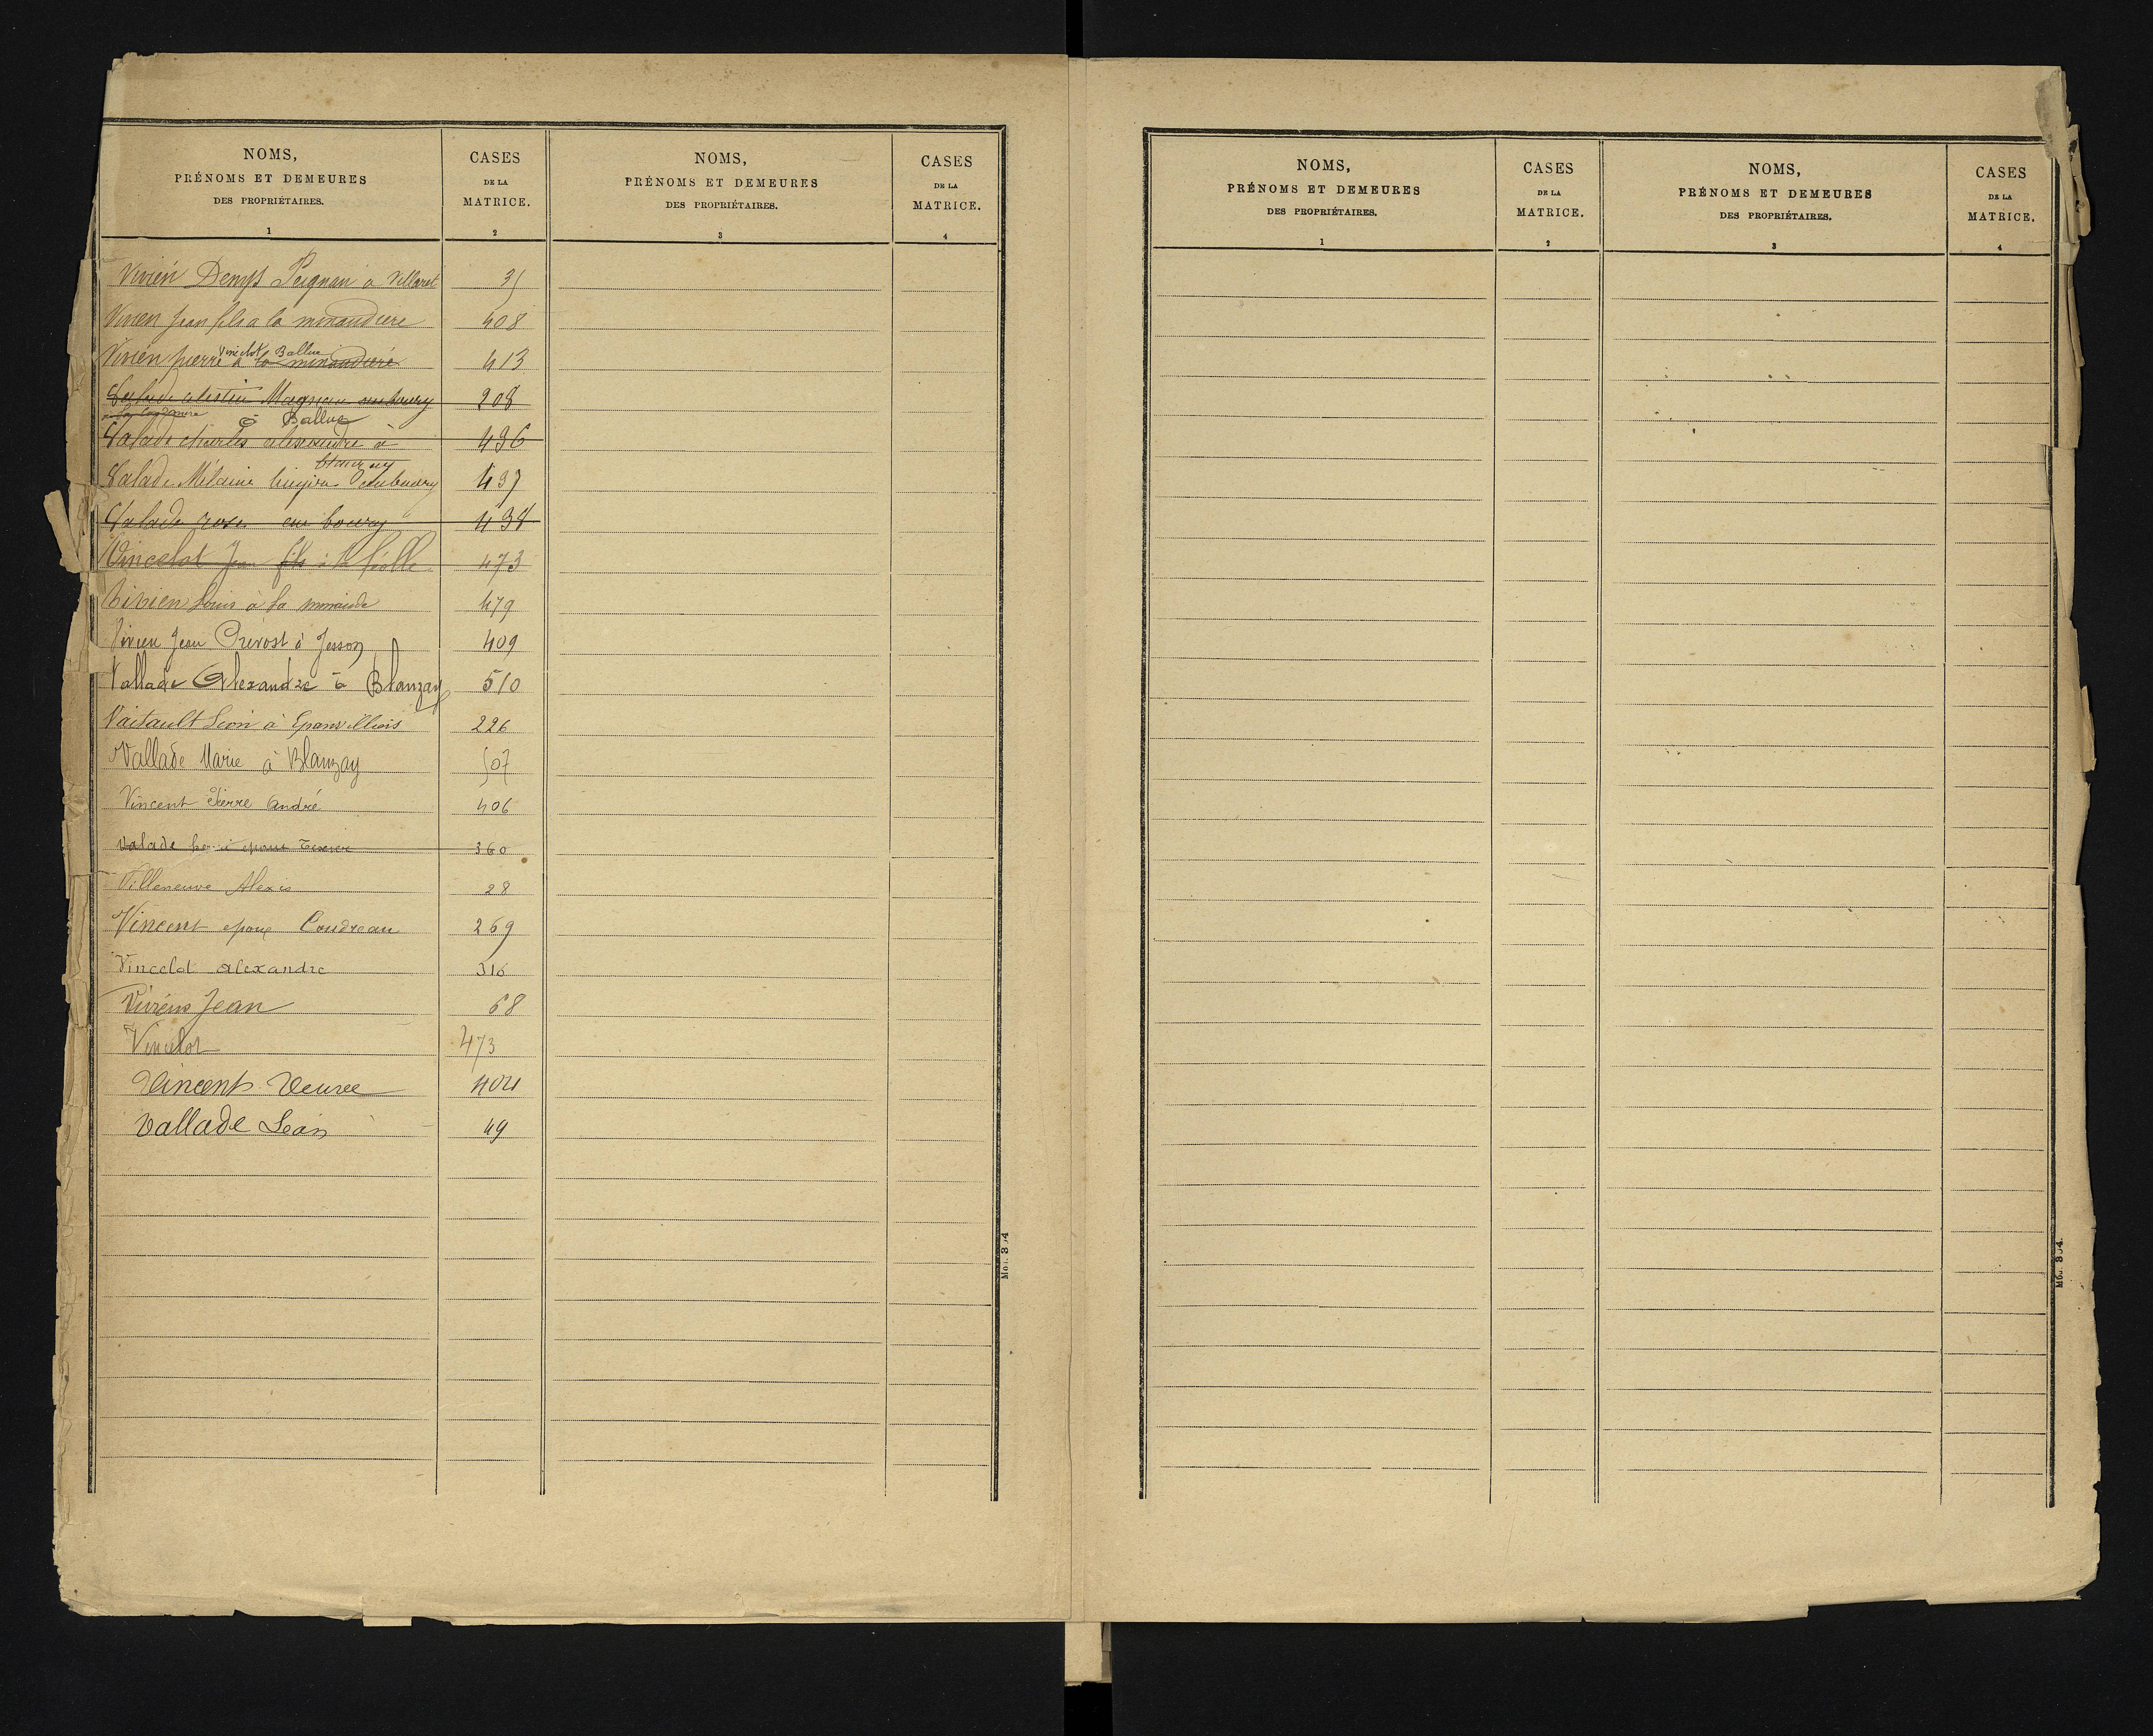 NOMS,
PRÉNOMS ET DEMEURES
DES PROPRIÉTAIRES.
1
CASES
DE LA
MATRICE.
2
NOMS,
PRÉNOMS ET DEMEURES
DES PROPRIÉTAIRES.
3
CASES
DE LA
MATRICE.
4
Vivien Denys Peignan à Villaret 35
Vivien Jean fils a la minaudiere 408
Vincelot Ballue
Vivien pierre à la minaudiere 413
Magnan au bourg 208
à Ballue
Valade charles alexandre à 436
Valade Mélanie au bourg 437
Valade rose au bourg 438
Vincelot Jean fils à la 473
Vivien Louis à la 479
Vivien Jean Prévost à Jesson 409
Vallade Alexandre à Blanzay 510
Léon à Epanvilliers 226
Vallade Marie à Blanzay 507
Vincent Pierre André 406
Valade epouse Texier 360
Villeneuve Alexis 28
Vincent epoux Coudreau 269
Vincelot alexandre 316
Viviens Jean 68
Vincelot 473
Vincent Veuve 404
Vallade Léon 49
Mod. 304
NOMS,
PRÉNOMS ET DEMEURES
DES PROPRIÉTAIRES.
1
CASES
DE LA
MATRICE.
2
NOMS,
PRÉNOMS ET DEMEURES
DES PROPRIÉTAIRES.
3
CASES
DE LA
MATRICE.
4
Mod. 304.